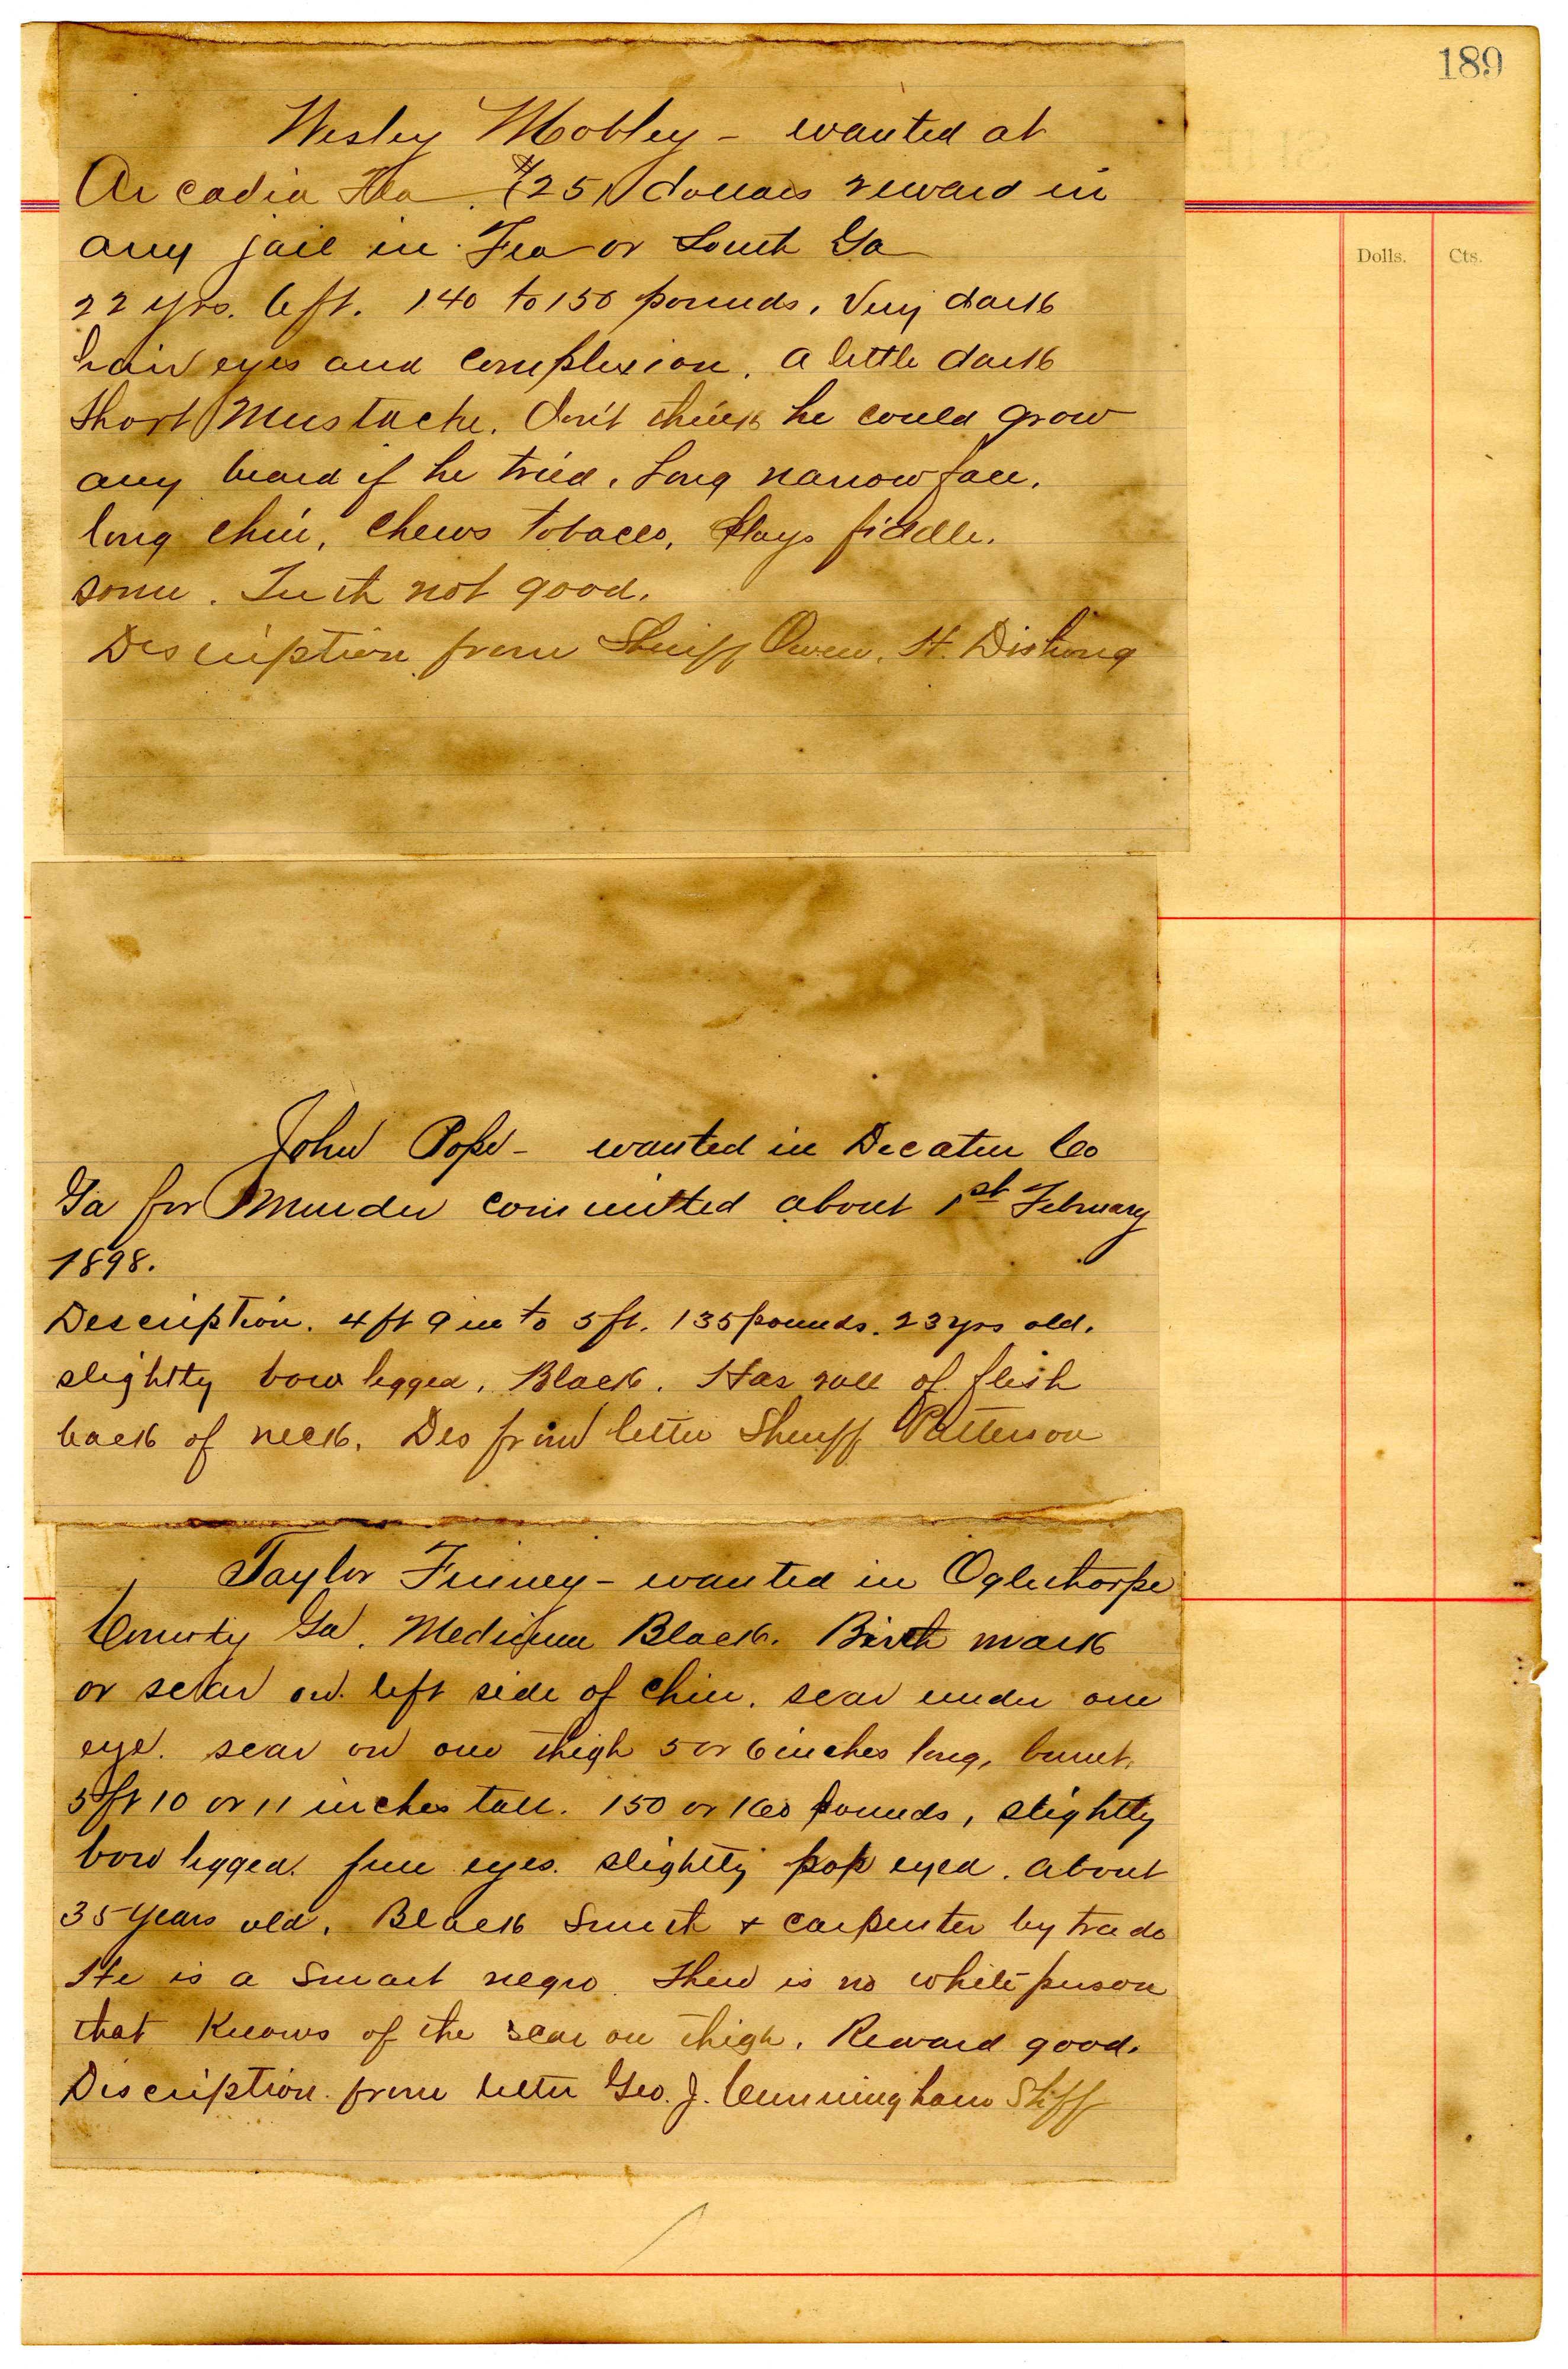 189
Dolls. Cts.
Wesley Mobley - wanted at
Arcadia Fla. $25 dollars reward in
any jail in Fla or South Ga
22 yrs. 6 ft. 140 to 150 pounds. Very dark
hair eyes and complexion. a little dark
short Mustache. Don't think he could grow
any beard if he tried. Long narrow face.
long chin, chews tobacco, plays fiddle.
some. Teeth not good.
Description from Sheriff Owen. H. Dishong
John Pope - wanted in Decatur Co
Ga for Murder committed about 1st February
1898.
Description. 4 ft 9 in to 5 ft. 135 pounds. 23 yrs old.
slightly bow legged. Black. Has roll of flesh
back of neck. Des from letter Sheriff Patterson
Taylor Finney - wanted in Oglethorpe
County Ga. Medium Black. Birth mark
or scar on left side of chin. scar under one
eye. scar on one thigh 5 or 6 inches long, burnt.
5 ft 10 or 11 inches tall. 150 or 160 pounds, slightly
bow legged. full eyes. slightly pop eyed. about
35 years old. Black Smith & carpenter by trade
He is a smart negro. There is no white person
that knows of the scar on thigh. Reward good.
Discription from letter Geo. J. Cunningham Shff